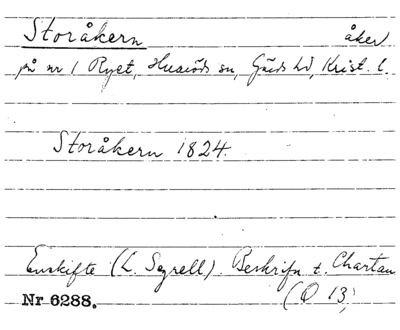 Storåkern åker
på nr 1 Ryet, Huaröds sn, Gärds hd, Krist. l.
Storåkern 1824.
Enskifte (L. Segrell). Beskrifn t. Chartan
Nr 6288. (Q 13)